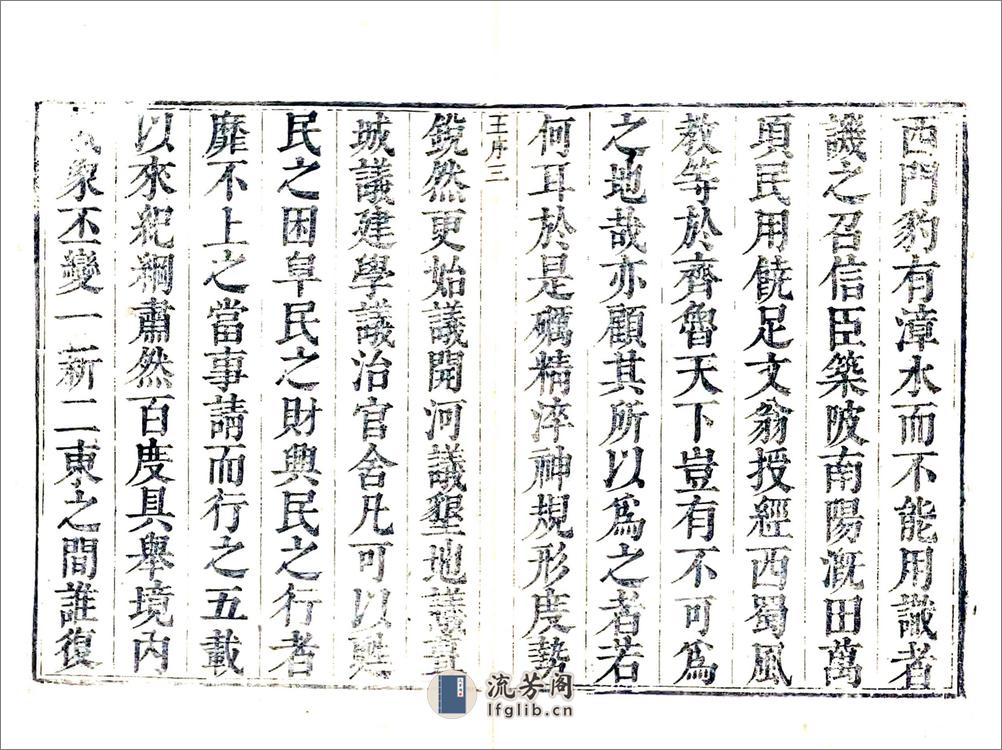 西門豹有漳水而不能用識者
譏之召信臣築陂南陽漑田萬
頃民用饒足文翁授經西蜀風
教等於齊魯天下豈有不可爲
之地哉亦顧其所以爲之者若
何耳於是礪精淬神規形度勢
王序三
銳然更始議開河議墾地議
城議建學議治官舍凡可以甦
民之困阜民之財興民之行者
靡不上之當事請而行之五載
以來紀綱肅然百度具舉境內
象丕變一新二東之間誰復
流芳阁
lfglib.cn